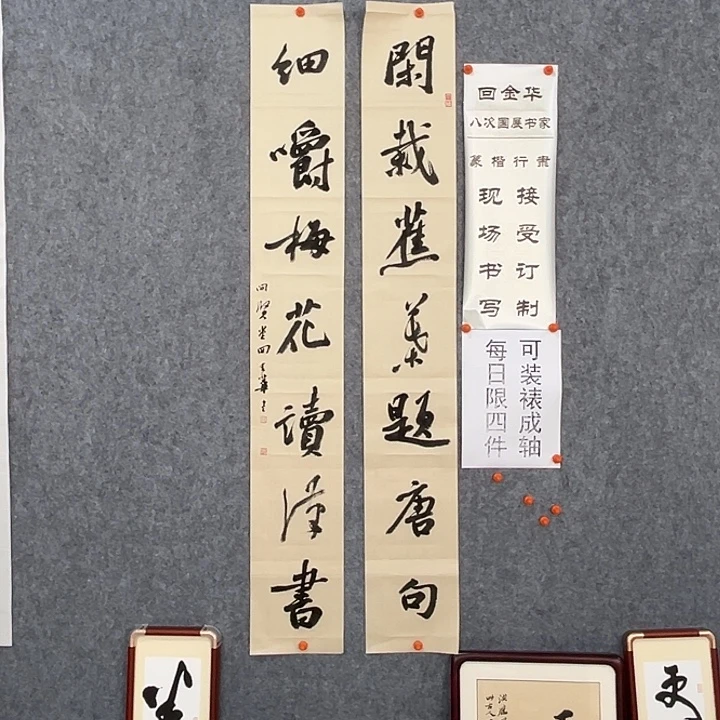 閑裁蕉葉題唐句
細嚼梅花讀漢書
賢堂回金華
回金华
八次国展书家
篆楷行肃
接受订制
现场书写
可装裱成轴
每日限四件